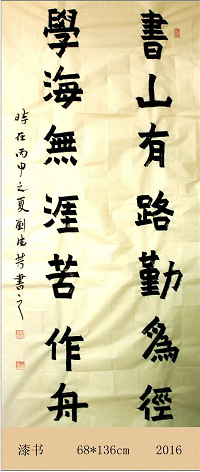 書山有路勤為徑
學海無涯苦作舟
時在丙申之夏劉生芳書之
漆书 68*136cm 2016